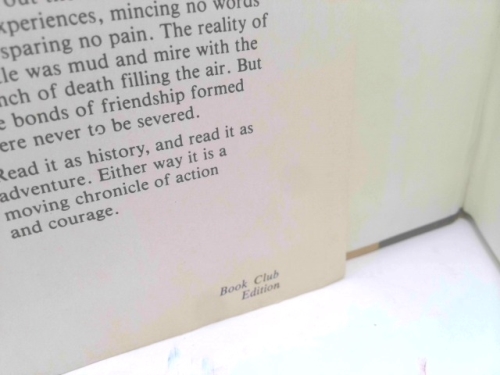 experiences, mincing no words
sparing no pain. The reality of
was mud and mire with the
of death filling the air. But
bonds of friendship formed
were never to be severed.
Read it as history, and read it as
adventure. Either way it is a
moving chronicle of action
and courage.
Book Club
Edition